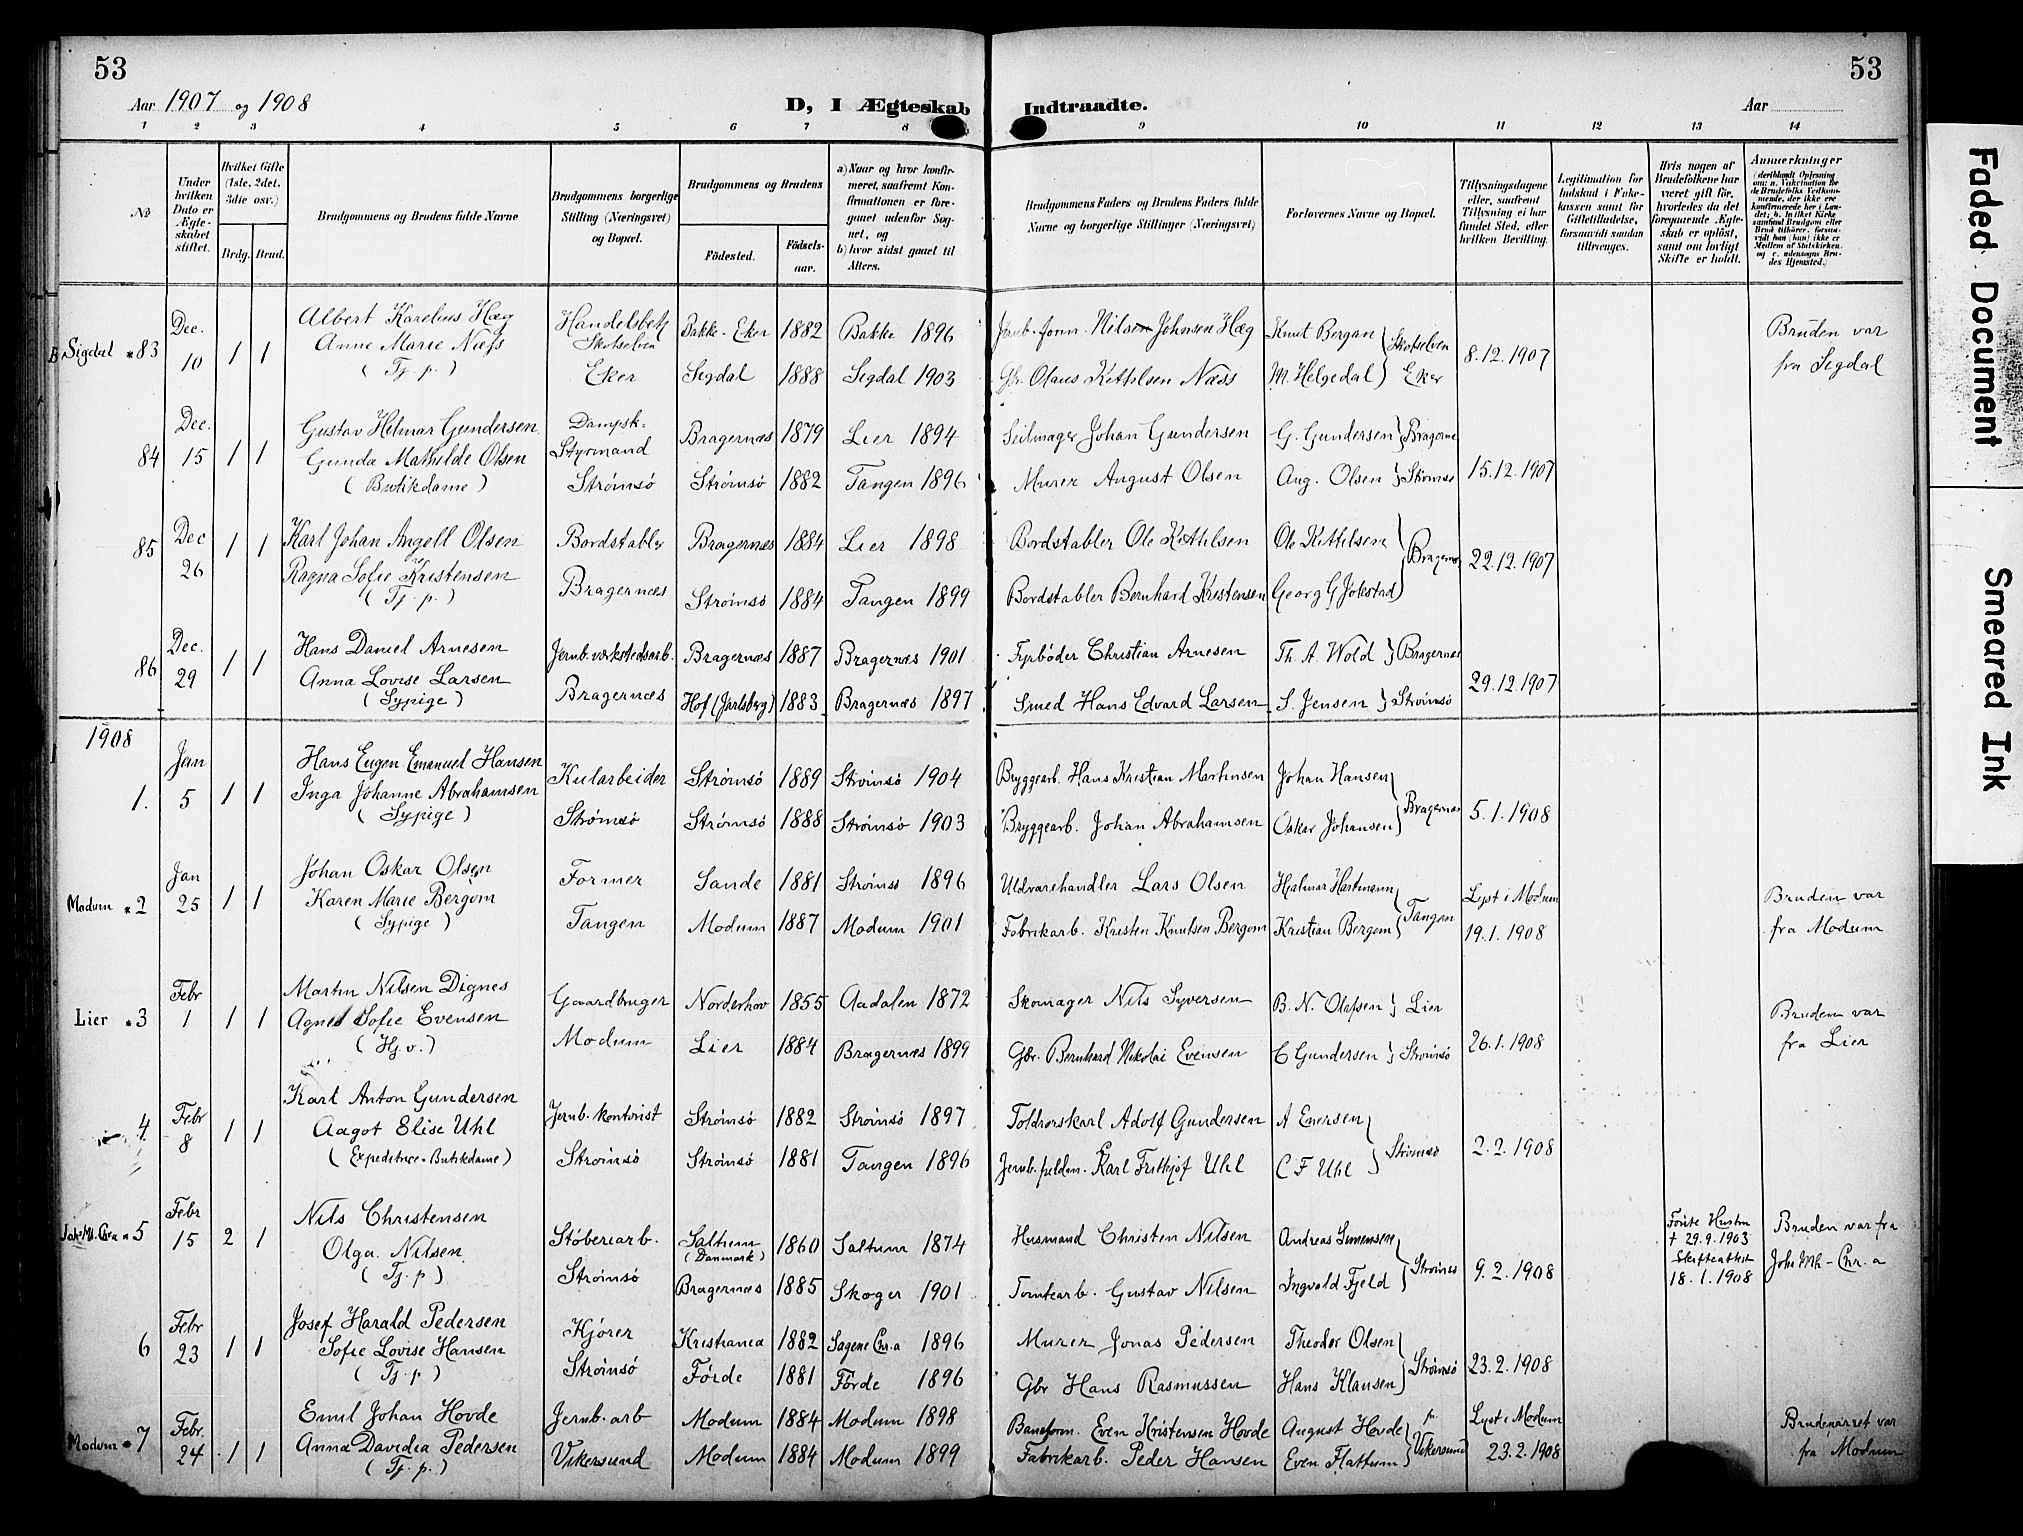 53
53
Aar 1907 og 1908
D, I Ægteskab Indtraadte.
Aar
1 2 3 4 5 6 7 8 9 10 11 12 13 14
No
Under hvilken Dato er Ægteskabet stiftet.
Hvilket Gifte (1ste, 2det, 3die osv.)
Brdg. Brud.
Brudgommens og Brudens fulde Navne
Brudgommens borgerlige Stilling (Næringsvei) og Bopæl.
Brudgommens og Brudens
Födested.
Födselsaar.
a) Naar og hvor konfirmeret, saafremt Konfirmationen er foregaaet udenfor Sognet, og
b) hvor sidst gaaet til Alters.
Brudgommens Faders og Brudens Faders fulde Navne og borgerlige Stillinger (Næringsvei)
Forlovernes Navne og Bopæl.
Tillysningsdagene eller, saafremt Tillysning ei har fundet Sted, efter hvilken Bevilling.
Legitimation for Indskud i Enkekassen samt for Giftetilladelse, forsaavidt saadan tiltrænges.
Hvis nogen af Brudefolkene har været gift för, hvorledes da det foregaaende Ægteskab er oplöst, samt om lovligt Skifte er holdt.
Anmærkninger
Sigdal 83 Dec. 10 1 1
Albert Karelius Hæg
Anne Marie Næss
(Tj. p.)
Handelsbetj.
Skotselven
Eker
Bakke-Eker 1882 Bakke 1896
Sigdal 1888 Sigdal 1903
Jernb. form. Nils Johnsen Hæg
Gbr. Olaus Kittilsen Næss
Knut Bergan
M. Helgedal
Skotselven
Eker
8.12.1907
Bruden var
fra Sigdal
84 Dec. 15 1 1
Gustav Helmar Gundersen
Gunda Mathilde Olsen
(Butikdame)
Dampsk.
Styrmand
Strømsö
Bragernæs 1879 Lier 1894
Strømsö 1882 Tangen 1896
Seilmager Johan Gundersen
Murer August Olsen
G. Gundersen } Bragernæs
Aug. Olsen } Strømsö
15.12.1907
85 Dec 26 1 1
Karl Johan Angell Olsen
Ragna Sofie Kristensen
(Tj. p.)
Bordstabler
Bragernæs
Bragernæs 1884 Lier 1898
Strømsö 1884 Tangen 1899
Bordstabler Ole Kittilsen
Bordstabler Bernhard Kristensen
Ole Kittilsen
Georg G Jokstad
Bragernæs
22.12.1907
86 Dec. 29 1 1
Hans Daniel Arnesen
Anna Lovise Larsen
(Sypige)
Jernb. verkstedsarb.
Bragernæs
Bragernæs 1887 Bragernæs 1901
Hof (Jarlsberg) 1883 Bragernæs 1897
Fyrböder Christian Arnesen
Smed Hans Edvard Larsen
Th. A. Wold } Bragernæs
S. Jensen } Strømsö
29.12.1907
1908
1. Jan 5 1 1
Hans Eugen Emanuel Hansen
Inga Johanne Abrahamsen
(Sypige)
Kularbeider
Strømsö
Strømsö 1889 Strömsö 1904
Strømsö 1888 Strømsö 1903
Bryggearb. Hans Kristian Martinsen
Bryggearb. Johan Abrahamsen
Johan Hansen
Oskar Johansen
Bragernæs
5.1.1908
Modum 2 Jan 25 1 1
Johan Oskar Olsen
Karen Marie Bergom
(Sypige)
Former
Tangen
Sande 1881 Strømsö 1896
Modum 1887 Modum 1901
Uldvarehandler Lars Olsen
Fabrikarb. Kristen Knutsen Bergom
Hjalmar Hartmann
Kristian Bergom
Tangen
Lyst i Modum
19.1.1908
Bruden var
fra Modum
Lier 3 Febr 1 1 1
Martin Nilsen Dignes
Agnes Sofie Evensen
(Hj. v.)
Gaardbruger
Modum
Norderhov 1855 Aadalen 1872
Lier 1884 Bragernæs 1899
Skomager Nils Syversen
Gbr. Bernhard Nikolai Evensen
B. N. Olafsen } Lier
C Gundersen } Strømsö
26.1.1908
Bruden var
fra Lier
4 Febr 8 1 1
Karl Anton Gundersen
Aagot Elise Uhl
(Expeditrice-Butikdame)
Jernb. kontorist
Strömsö
Strømsö 1882 Strømsö 1897
Strømsö 1881 Tangen 1896
Toldrorskarl Adolf Gundersen
Jernb. fuldm. Karl Frithjof Uhl
A Enersen
C F Uhl
Strömsö
2.2.1908
Joh. Mk. Chr.a 5 Febr 15 2 1
Nils Christensen
Olga Nilsen
(Tj. p)
Støberiarb.
Strömsö
Saltum
(Danmark) 1860 Saltum 1874
Bragernæs 1885 Skoger 1901
Husmand Christen Nilsen
Tomtearb. Gustav Nilsen
Andreas Simensen
Ingvald Fjeld
Strömsö
9.2.1908
Første Hustru
† 29.9.1903
Skifteattest
18.1.1908
Bruden var fra
Johs Mk - Chr.a
6 Febr 23 1 1
Josef Harald Pedersen
Sofie Lovise Hansen
(Tj. p)
Kjører
Strømsö
Kristiania 1882 Sagene Chr.a 1896
Förde 1881 Förde 1896
Murer Jonas Pedersen
Gbr Hans Rasmussen
Theodor Olsen
Hans Klausen
Strømsö
23.2.1908
Modum 7 Febr. 24 1 1
Emil Johan Hovde
Anna Davidia Pedersen
(Tj. p.)
Jernb. arb
Vikersund
Modum 1884 Modum 1898
Modum 1884 Modum 1899
Baneform. Even Kristensen Hovde
Fabrikarb. Peder Hansen
August Hovde
Even Flattum
Vikersund
Lyst i Modum
23.2.1908
Brudeparret var
fra Modum
Faded Document
Smeared Ink